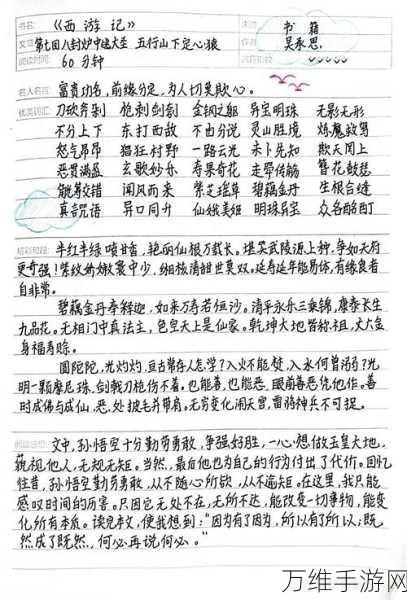 书名: 《西游记》
类别: 书籍
文章: 第七回 八卦炉中逃大圣 五行山下定心猿
作者: 吴承恩
阅读时间: 60分钟
名人名言: 富贵功名,前缘分定,为人切莫欺心。
优美词汇: 刀砍斧剁 枪刺剑刳 金钢之躯 异宝明珠 无影无形
不分上下 东打西敌 不由分说 灵山胜境 炼魔救驾
怒气昂昂 猖狂村野 一路云光 未卜先知 欺天罔上
恶贯满盈 玄歌妙乐 寿果奇花 走斝传觞 簪花鼓瑟
觥筹交错 闻风而来 紫芝瑶草 碧藕金丹 生根合缝
真言咒语 异口同声 仙娥美姬 明珠异宝 众各酩酊
精彩片段: 半红半绿喷甘香,艳丽仙根万载长。堪笑武陵源上种,争如天府
更奇强!紫纹娇嫩寰中少,缃核清甜世莫双。延寿延年能易体,有缘食者
自非常。
碧藕金丹奉释迦,如来万寿若恒沙。清平永乐三乘锦,康泰长生
九品花。无相门中真法主,色空天上是仙家。乾坤大地皆称祖,丈六金
身福寿赊。
圆陀陀,光灼灼,亘古常存人怎学?入火不能焚,入水何曾溺?光
明一颗摩尼珠,剑戟刀枪伤不着。也能善,也能恶,眼前善恶凭他作。善
时成佛与成仙,恶处披毛并带角。无穷变化闹天宫,雷将神兵不可捉。
阅读感想: 文中,孙悟空十分勤劳勇敢,争强好胜,一心想做玉皇大地,
藐视他人,无规无矩。当然,最后他也为自己的行为付出了代价。回忆
往昔,孙悟空勤劳勇敢,从不随心所欲,从不逾矩。在这里,我只能
感叹时间的历害。只因它无处不在,无所不达,能改变一切事物,能变
化所有本质。读完本文,使我想到:"因为有了因为,所以有了所以;既
然成了既然,何必再说何必。"
万维手游网